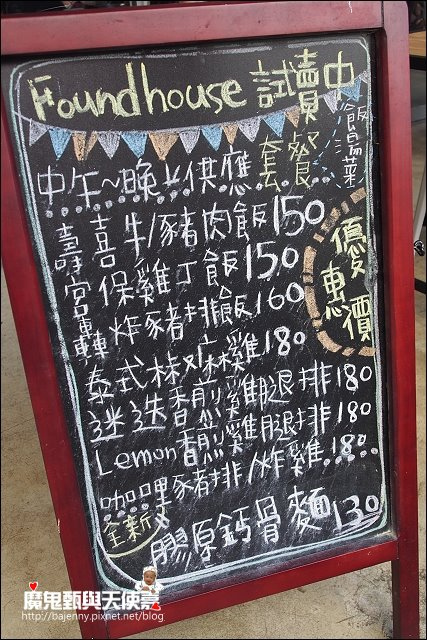 Foundhouse 試賣中
中午~晚上供應套餐 飯湯菜
壽喜牛/豬肉飯150
宮保雞丁飯150
轟炸豬排飯160
泰式椒麻雞180
迷迭香煎雞腿排180
Lemon香煎雞腿排180
咖哩豬排/炸雞180
優惠價
全新
膠原鈣骨麵130
魔鬼甄與天使嘉
http://bajenny.pixnet.net/blog